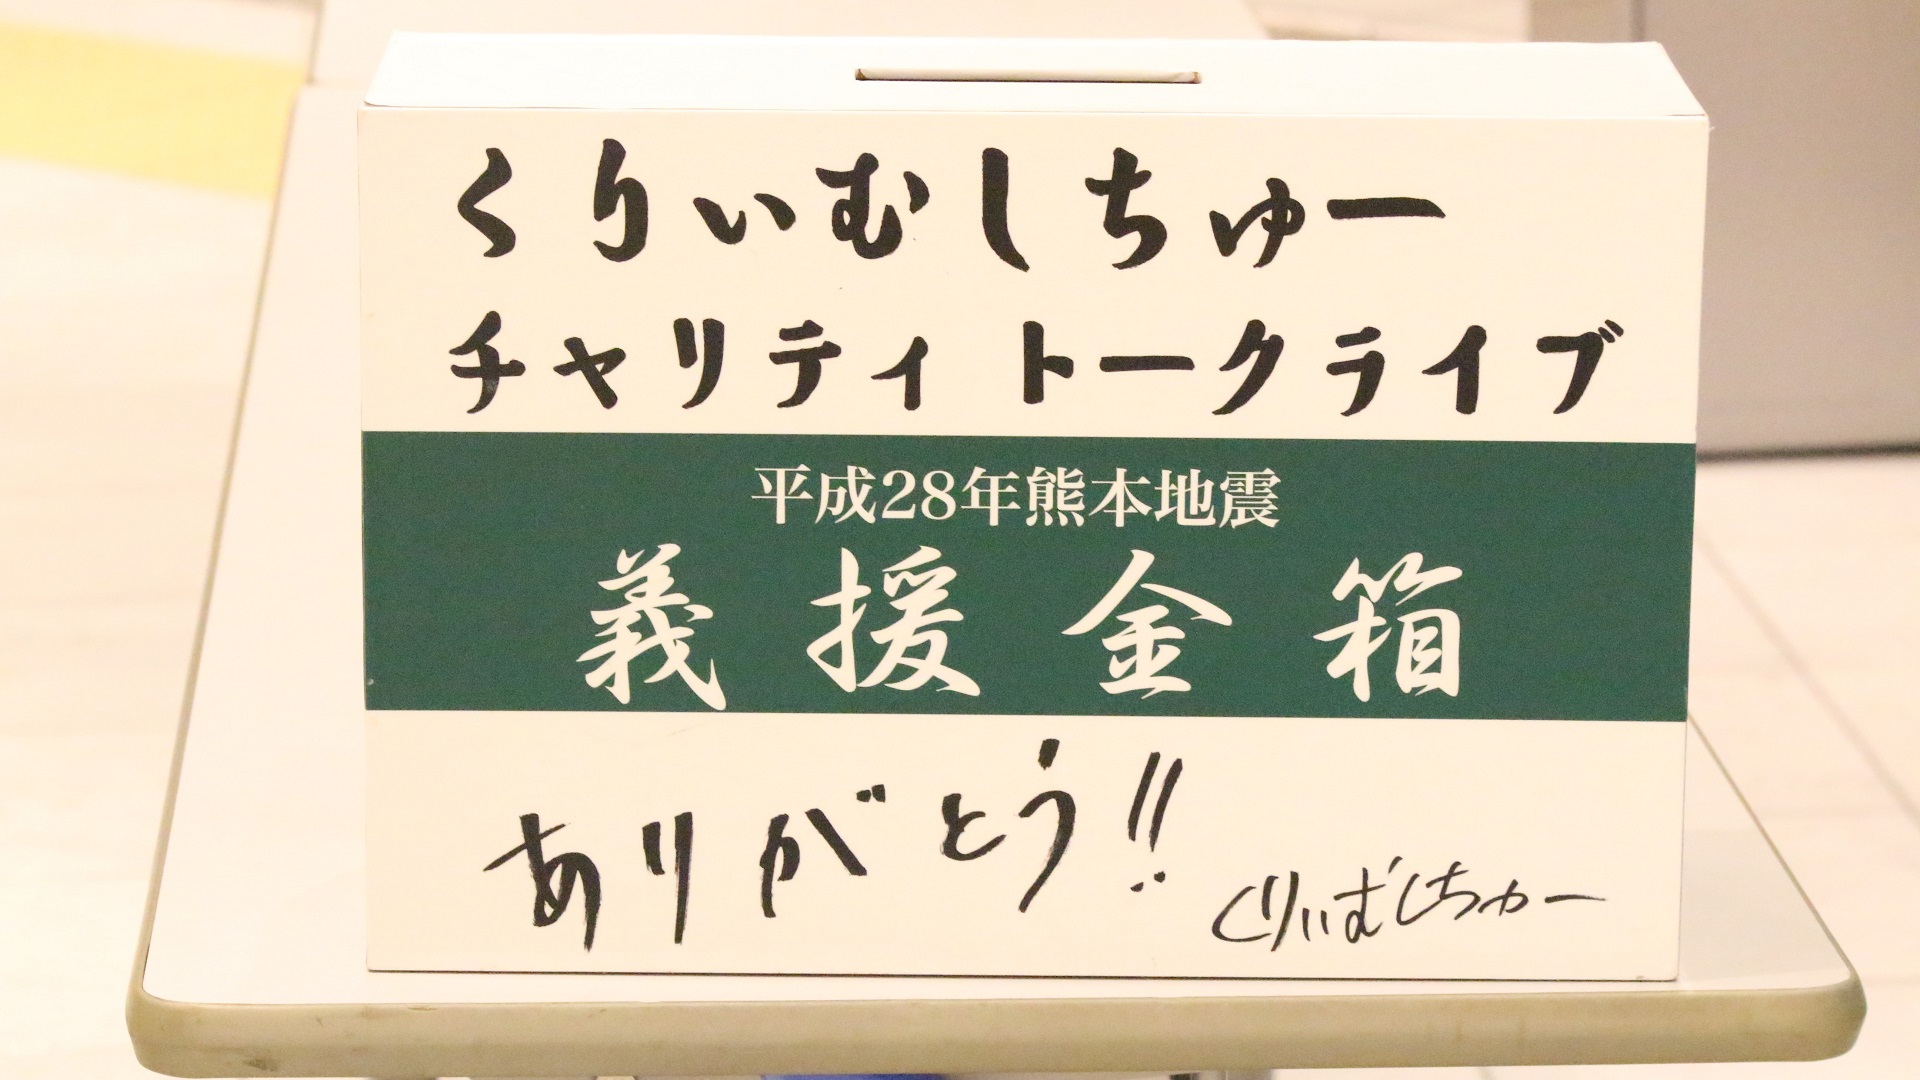 くりぃむしちゅー
チャリティ トークライブ
平成28年熊本地震
義援金箱
ありがとう!!
くりぃむしちゅー